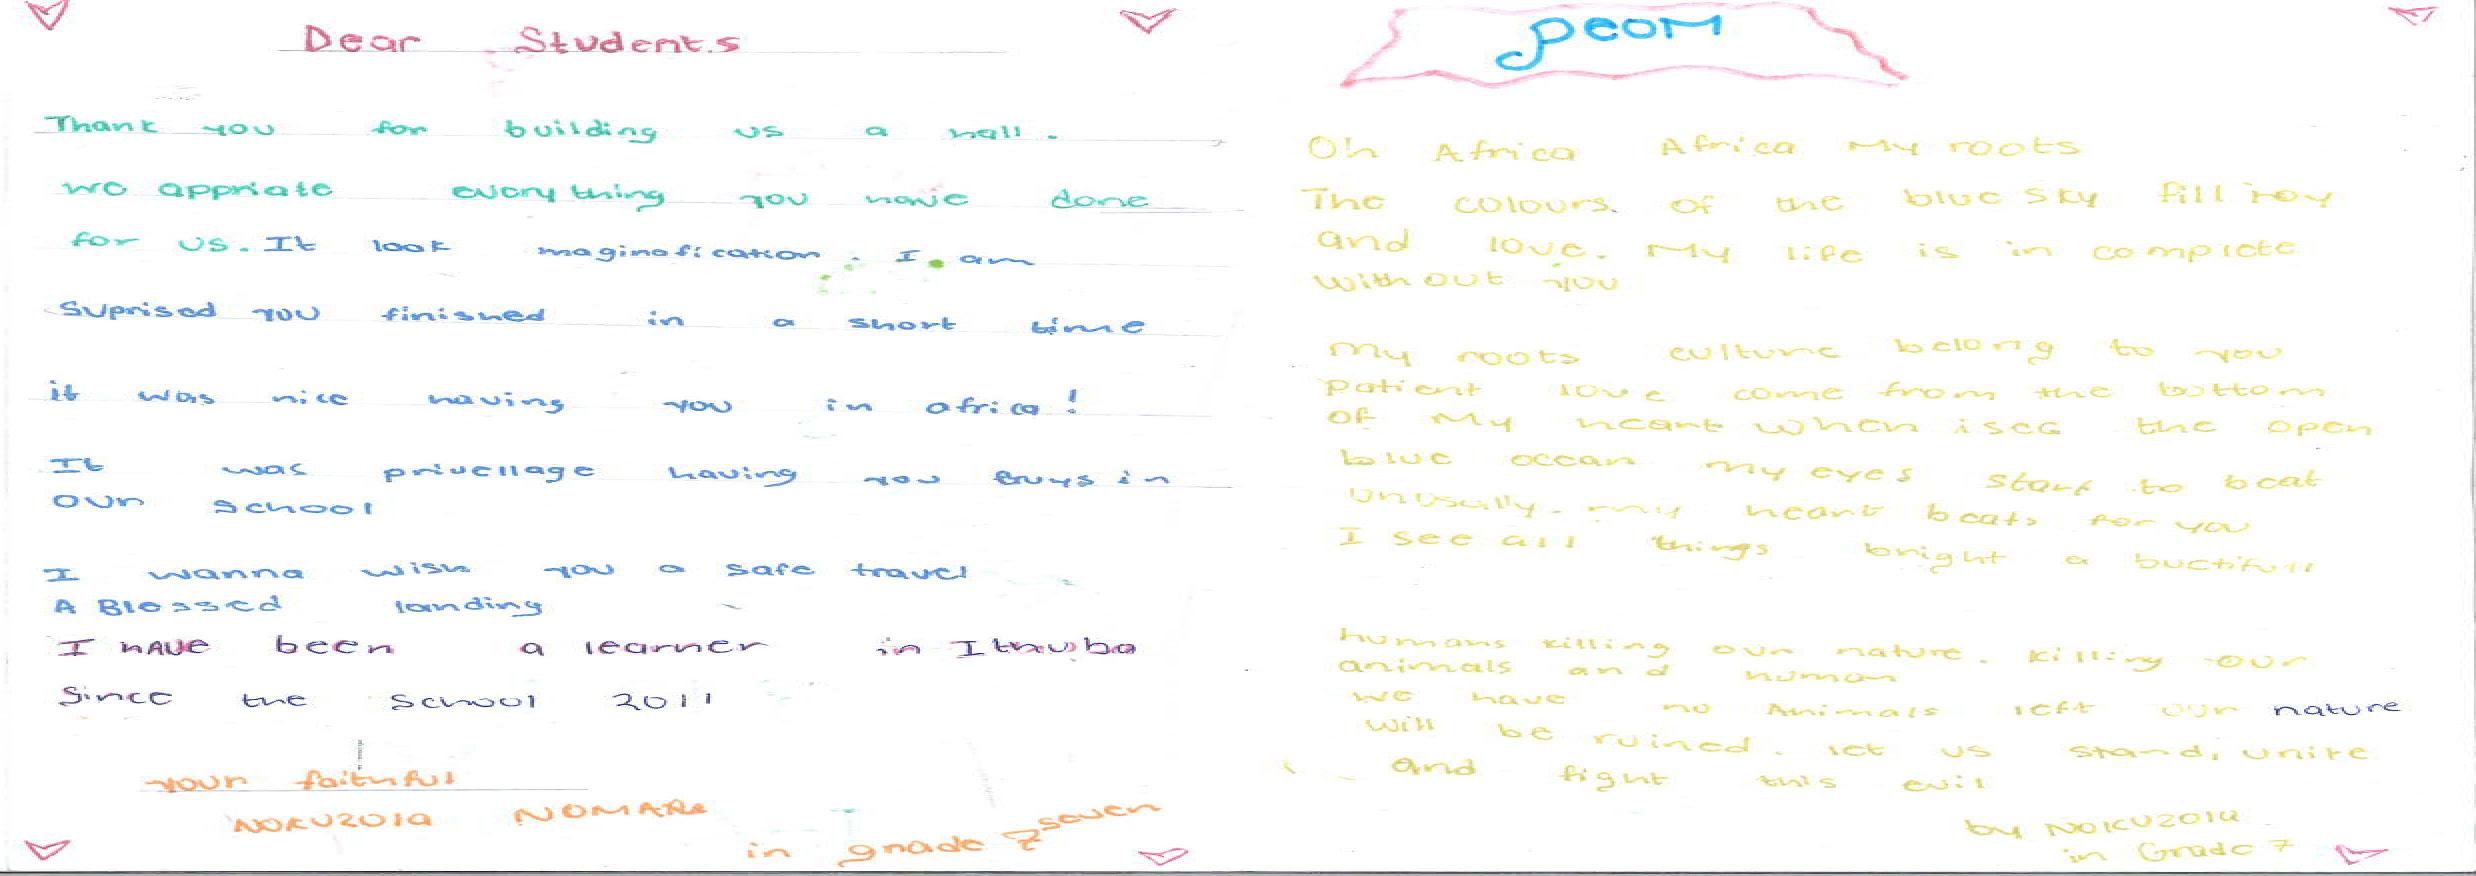 Dear Students
Thank you for building us a hall.
we appriate everything you have done
for us. It look maginofication. I am
Suprised you finished in a short time
it was nice having you in africa!
It was privellage having you guys in
our school
I wanna wish you a safe travel
A Blessed landing
I have been a learner in Ithuba
Since the School 2011
your faithful
NOKUZOLA
in grade 7 seven
peom
Oh Africa Africa My roots
The colours of the blue sky fill joy
and love. My life is in complete
with out you
My roots culture belong to you
patient love come from the bottom
of My heart when i see the open
blue ocean my eyes start to beat
unusally. my heart beats for you
I see all things bright a buetifull
humans killing our nature. killing our
animals and human
we have no Animals left our nature
will be ruined. let us stand, unite
and fight this evil
by NOKUZOLA
in Grade 7